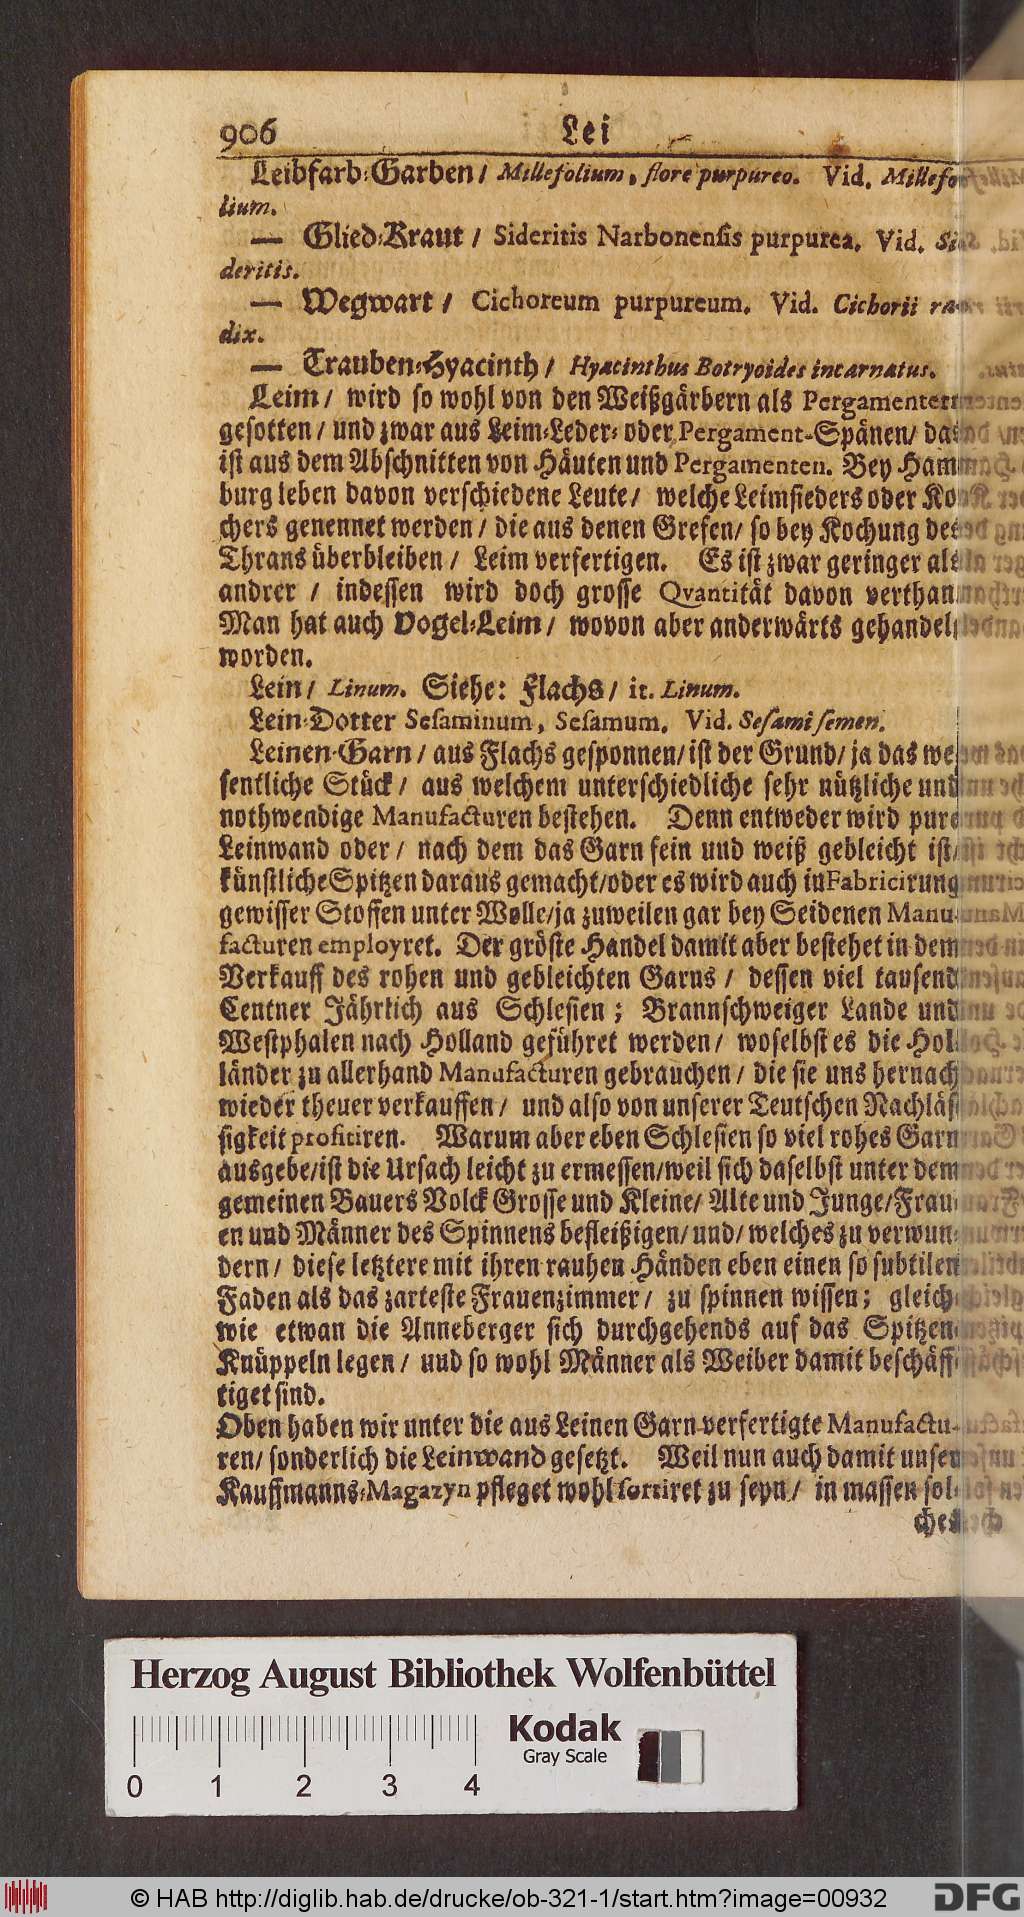 906 Lei
Leibfarb-Garben / Millefolium, flore purpureo. Vid. Millefo-
lium.
— Glied-Kraut / Sideritis Narbonensis purpurea. Vid. Si-
deritis.
— Wegwart / Cichoreum purpureum. Vid. Cichorii ra-
dix.
— Trauben-Hyacinth / Hyacinthus Botryoides incarnatus.
Leim / wird so wohl von den Weißgärbern als Pergamentern
gesotten / und zwar aus Leim-Leder- oder Pergament-Spänen / das
ist aus dem Abschnitten von Häuten und Pergamenten. Bey Ham-
burg leben davon verschiedene Leute / welche Leimsieders oder Ko-
chers genennet werden / die aus denen Grefen / so bey Kochung des
Thrans überbleiben / Leim verfertigen. Es ist zwar geringer als
andrer / indessen wird doch grosse Qvantität davon verthan.
Man hat auch Vogel-Leim / wovon aber anderwärts gehandelt
worden.
Lein / Linum. Siehe: Flachs / it. Linum.
Lein-Dotter Sesaminum, Sesamum. Vid. Sesami semen.
Leinen-Garn / aus Flachs gesponnen / ist der Grund / ja das we-
sentliche Stück / aus welchem unterschiedliche sehr nützliche und
nothwendige Manufacturen bestehen. Denn entweder wird pure
Leinwand oder / nach dem das Garn fein und weiß gebleicht ist /
künstliche Spitzen daraus gemacht / oder es wird auch in Fabricirung
gewisser Stoffen unter Wolle / ja zuweilen gar bey Seidenen Manu-
facturen employret. Der gröste Handel damit aber bestehet in dem
Verkauff des rohen und gebleichten Garns / dessen viel tausend
Centner Jährlich aus Schlesien ; Brannschweiger Lande und
Westphalen nach Holland geführet werden / woselbst es die Hol-
länder zu allerhand Manufacturen gebrauchen / die sie uns hernach
wieder theuer verkauffen / und also von unserer Teutschen Nachläs-
sigkeit profitiren. Warum aber eben Schlesien so viel rohes Garn
ausgebe / ist die Ursach leicht zu ermessen / weil sich daselbst unter dem
gemeinen Bauers Volck Grosse und Kleine / Alte und Junge / Frau-
en und Männer des Spinnens befleißigen / und / welches zu verwun-
dern / diese letztere mit ihren rauhen Händen eben einen so subtilen
Faden als das zarteste Frauenzimmer / zu spinnen wissen ; gleich-
wie etwan die Anneberger sich durchgehends auf das Spitzen-
Knüppeln legen / und so wohl Männer als Weiber damit beschäff-
tiget sind.
Oben haben wir unter die aus Leinen Garn verfertigte Manufactu-
ren / sonderlich die Leinwand gesetzt. Weil nun auch damit unser
Kauffmanns-Magazyn pfleget wohl sortiret zu seyn / in massen sol-
ches
Herzog August Bibliothek Wolfenbüttel
Kodak
Gray Scale
0 1 2 3 4
© HAB http://diglib.hab.de/drucke/ob-321-1/start.htm?image=00932
DFG